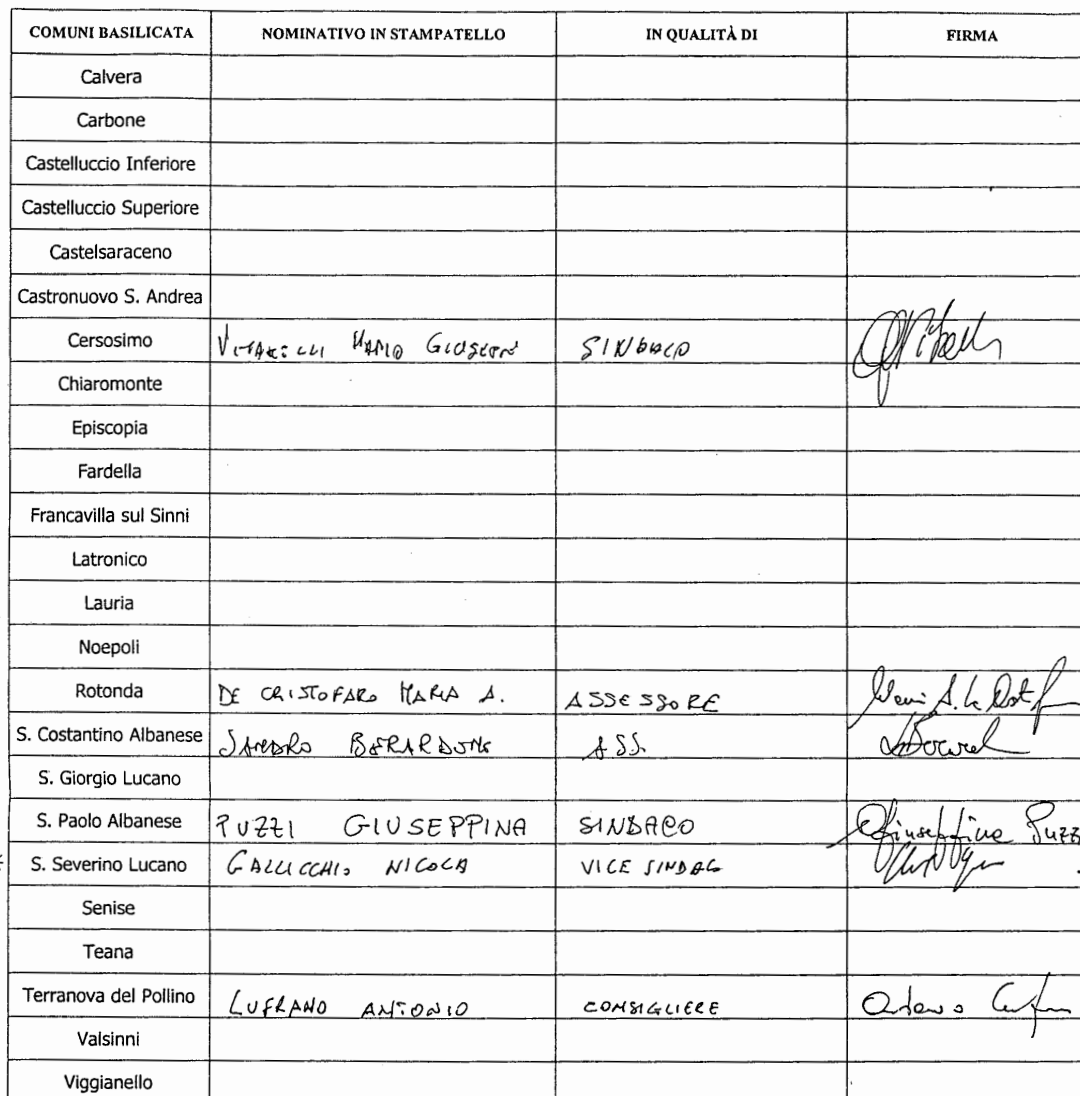 COMUNI BASILICATA NOMINATIVO IN STAMPATELLO IN QUALITÀ DI FIRMA
Calvera
Carbone
Castelluccio Inferiore
Castelluccio Superiore
Castelsaraceno
Castronuovo S. Andrea
Cersosimo MARIO SINDACO
Chiaromonte
Episcopia
Fardella
Francavilla sul Sinni
Latronico
Lauria
Noepoli
Rotonda DE CRISTOFARO MARIA A. ASSESSORE
S. Costantino Albanese SANDRO ASS.
S. Giorgio Lucano
S. Paolo Albanese PUZZI GIUSEPPINA SINDACO Giuseppina Puzzi
S. Severino Lucano GALLICCHIO NICOLA VICE SINDACO
Senise
Teana
Terranova del Pollino LUFRANO ANTONIO CONSIGLIERE
Valsinni
Viggianello